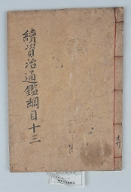 續資治通鑑綱目十三